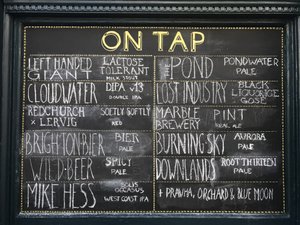 ON TAP
LEFT HANDED GIANT
LACTOSE TOLERANT
MILK STOUT
CLOUDWATER
DIPA v13
DOUBLE IPA
REDCHURCH x LERVIG
SOFTLY SOFTLY
RED
BRIGHTON BIER
BIER
PALE
WILD BEER
SPICY
PALE
MIKE HESS
SOLIS OCCASUS
WEST COAST IPA
THE POND
PONDWATER
PALE
LOST INDUSTRY
BLACK LIQUORICE GOSE
MARBLE BREWERY
PINT
REAL ALE
BURNING SKY
AURORA
PALE
DOWNLANDS
ROOT THIRTEEN
PALE
+ PRAVHA, ORCHARD & BLUE MOON